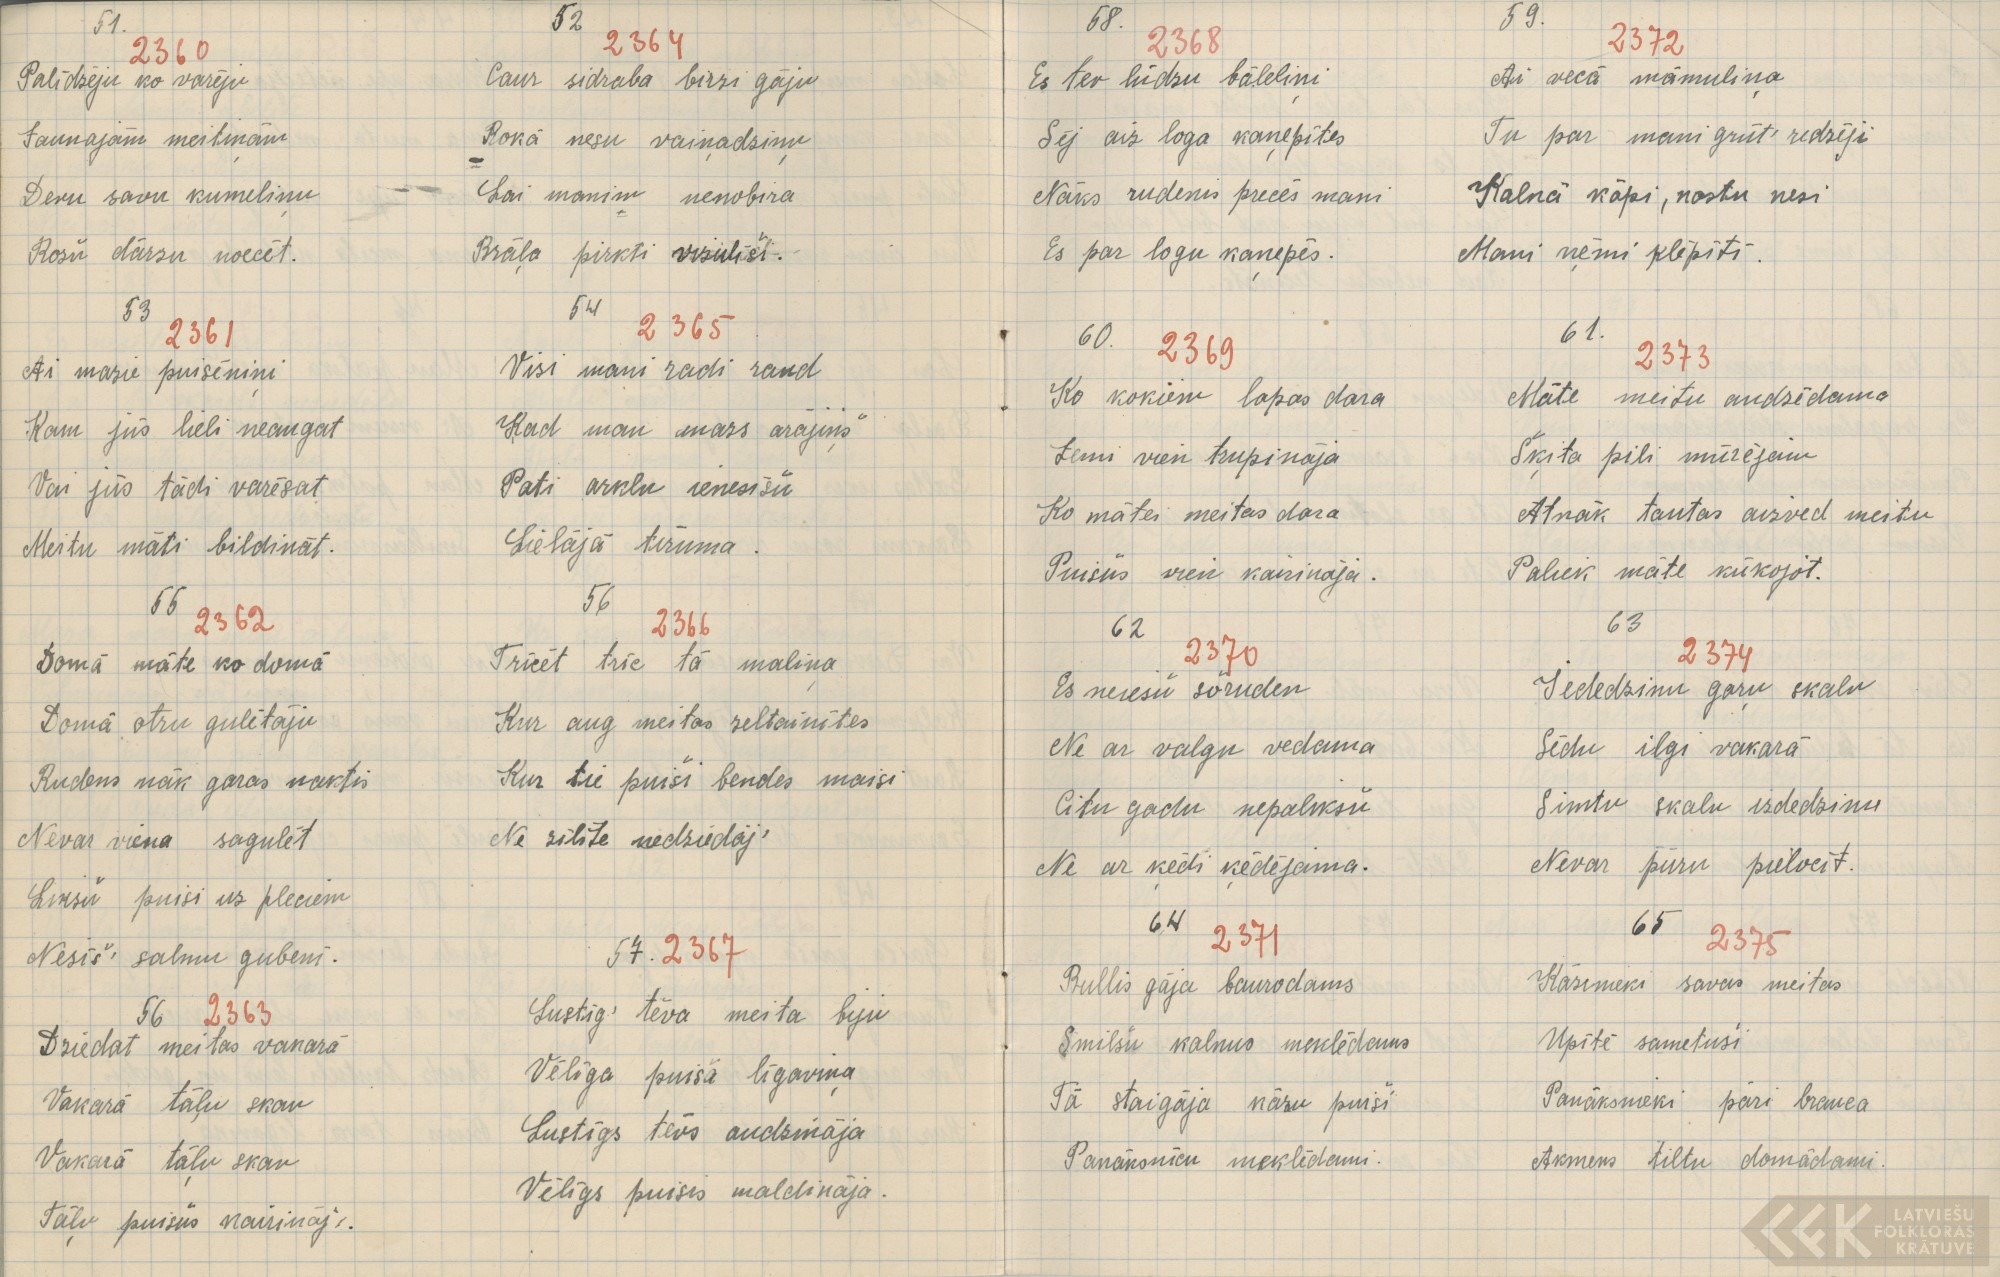 51.
2360
Palīdzēju ko varēju
Jaunajām meitiņām
Devu savu kumeliņu
Rožu dārzu noecēt.
53
2361
Ai mazie puisēniņi
Kam jūs lieli neaugat
Vai jūs tādi varēsat
Meitu māti bildināt.
55
2362
Domā māte ko domā
Domā otru gulētāju
Rudens nāk garas naktis
Nevar viena sagulēt
Likšu puisi uz pleciem
Nesīš' salmu gubeni.
56
2363
Dziedat meitas vakarā
Vakarā tāļu skan
Vakarā tāļu skan
Tāļu puišus kairināj'.
52
2364
Caur sidraba birzi gāju
Rokā nesu vaiņadziņu
Lai manim nenobira
Brāļa pirkti vizulīši.
54
2365
Visi mani radi raud
Kad man mazs arājiņš
Pati arklu ienesīšu
Lielājā tīrumā.
56
2366
Trīcēt trīc tā maliņa
Kur aug meitas zeltainītes
Kur tie puiši bendes maisi
Ne zīlīte nedziedāj'
57. 2367
Lustīg' tēva meita biju
Vēlīga puiša līgaviņa
Lustīgs tēvs audzināja
Vēlīgs puisis maldināja.
58.
2368
Es tev lūdzu bāleliņi
Sēj aiz loga kaņepītes
Nāks rudenis precēs mani
Es par logu kaņepēs.
60.
2369
Ko kokiem lapas dara
Zemi vien trupināja
Ko mātei meitas dara
Puišus vien kairināja.
62
2370
Es neiešu šōruden
Ne ar valgu vedama
Citu gadu nepalikšu
Ne ar ķēdi ķēdējama.
64
2371
Bullis gāja baurodams
Smilšu kalnus meklēdams
Tā staigāja kāzu puiši
Panāksnieku meklēdami.
59.
2372
Ai vecā māmuliņa
Tu par mani grūt' redzēji
Kalnā kāpi, nastu nesi
Mani ņēmi klēpītī.
61.
2373
Māte meitu audzēdama
Šķita pili mūrējam
Atnāk tautas aizved meitu
Paliek māte kūkojot.
63
2374
Iededzinu garu skalu
Sēdu ilgi vakarā
Simtu skalu izdedzinu
Nevar pūru pielocīt.
65
2375
Kāzinieki savas meitas
Upītē sametuši
Panāksnieki pāri brauca
Akmens tiltu domādami.
LATVIEŠU
FOLKLORAS
KRĀTUVE